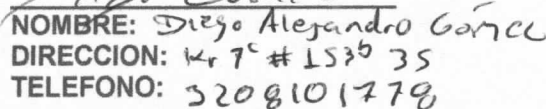 NOMBRE: Diego Alejandro Gómez
DIRECCION: Kr 7c # 153b 35
TELEFONO: 3208101778